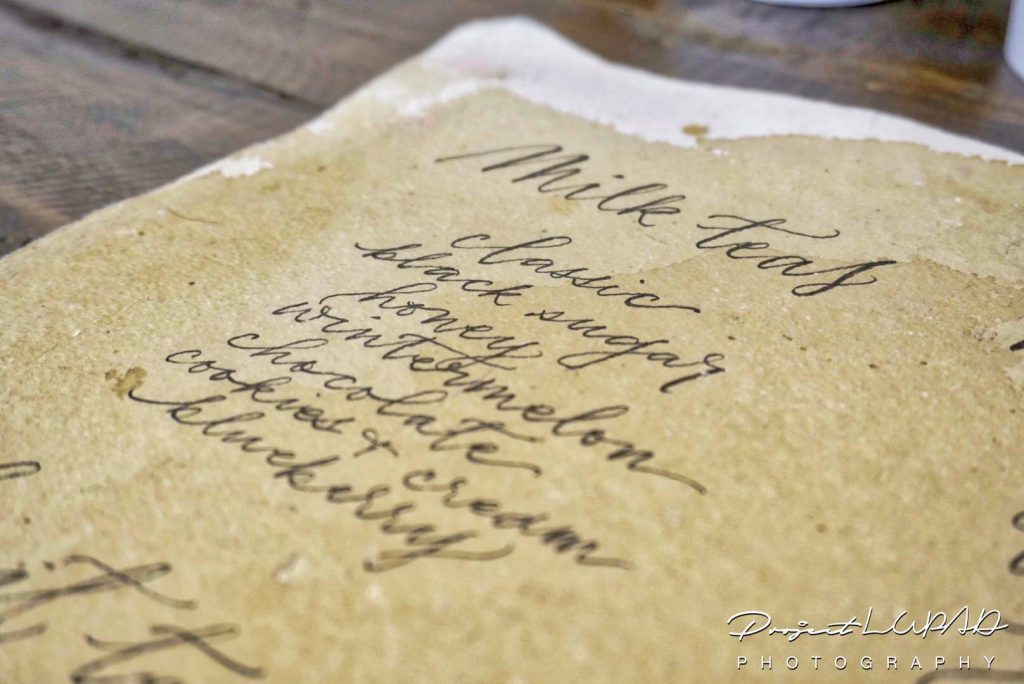 Milk teas
classic
black sugar
honey
wintermelon
chocolate
cookies & cream
blueberry
Project LUPAD
PHOTOGRAPHY